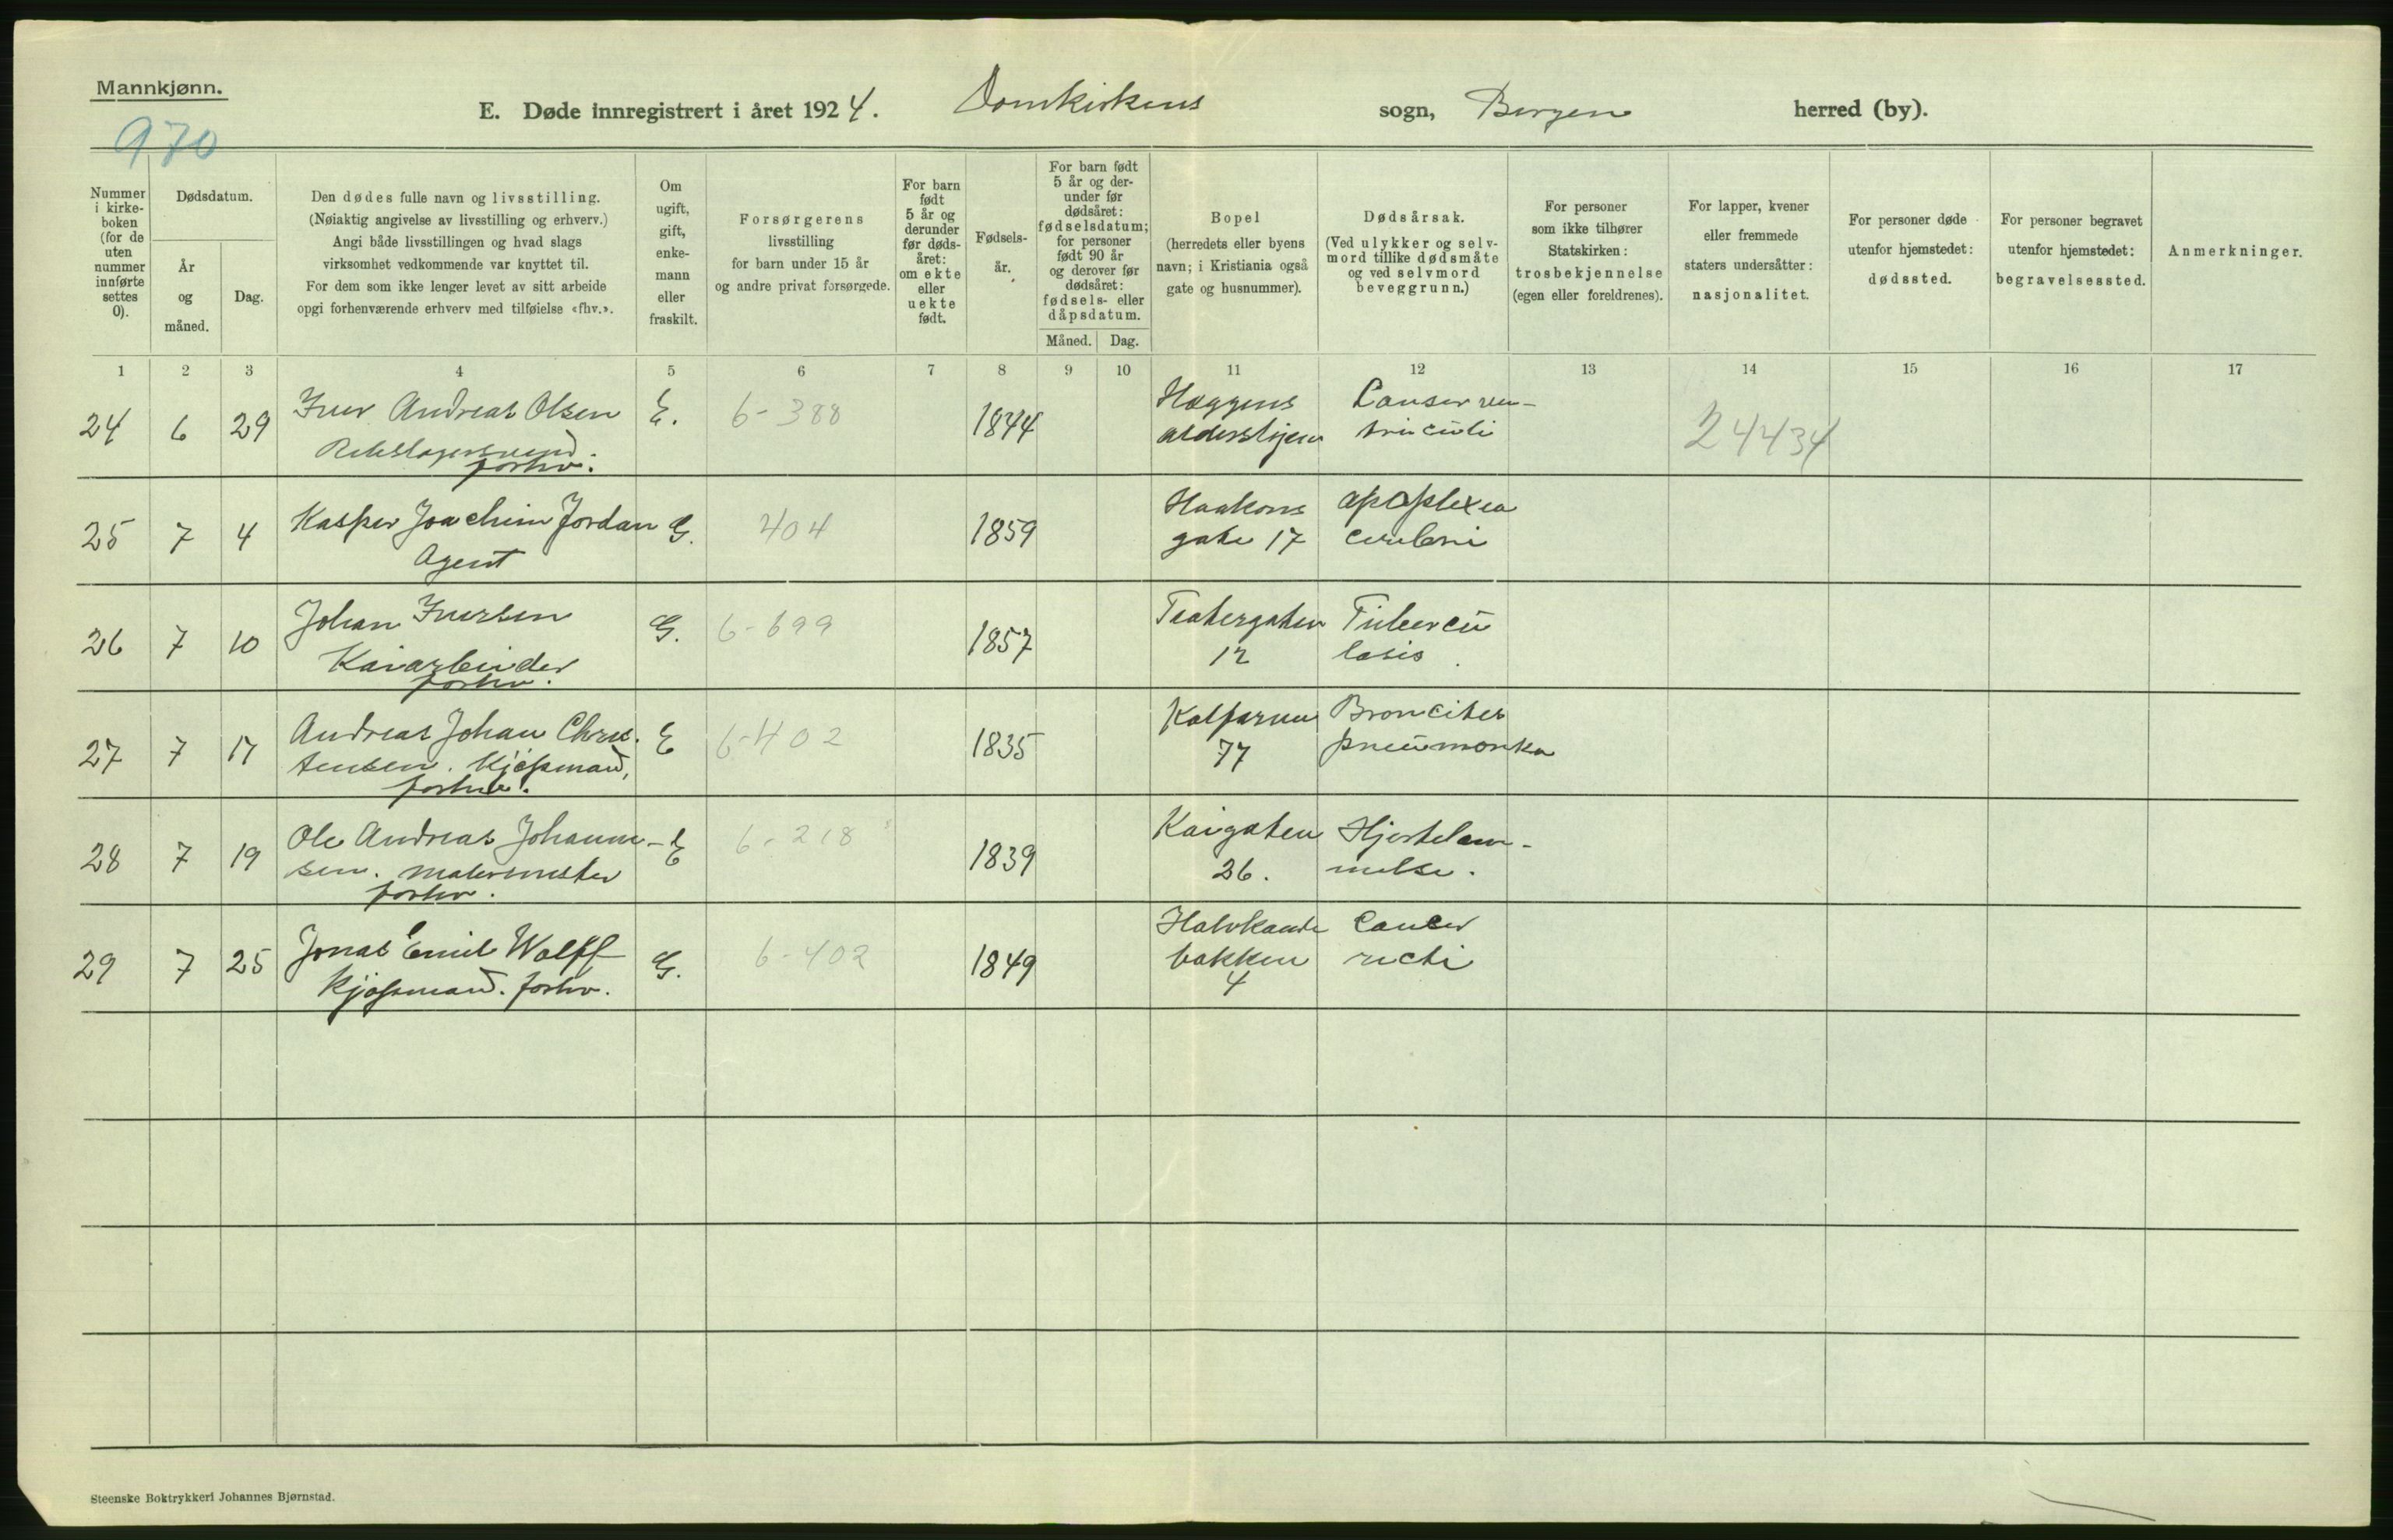 Mannkjønn.
970
E. Døde innregistrert i året 1924. Domkirkens sogn, Bergen herred (by).
Nummer i kirke-boken (for de uten nummer innførte settes 0).
Dødsdatum.
År og måned.
Dag.
Den dødes fulle navn og livsstilling.
(Nøiaktig angivelse av livsstilling og erhverv.)
Angi både livsstillingen og hvad slags
virksomhet vedkommende var knyttet til.
For dem som ikke lenger levet av sitt arbeide
opgi forhenværende erhverv med tilføielse «fhv.».
Om ugift, gift, enke-mann eller fraskilt.
Forsørgerens
livsstilling
for barn under 15 år
og andre privat forsørgede.
For barn født 5 år og derunder før døds-året: om ekte eller uekte født.
Fødsels-år.
For barn født 5 år og der-under før dødsåret: fødselsdatum; for personer født 90 år og derover før dødsåret: fødsels- eller dåpsdatum.
Måned. Dag.
Bopel
(herredets eller byens
navn; i Kristiania også
gate og husnummer).
Dødsårsak.
(Ved ulykker og selv-
mord tillike dødsmåte
og ved selvmord
beveggrunn.)
For personer
som ikke tilhører
Statskirken:
trosbekjennelse
(egen eller foreldrenes).
For lapper, kvener
eller fremmede
staters undersåtter:
nasjonalitet.
For personer døde
utenfor hjemstedet:
dødssted.
For personer begravet
utenfor hjemstedet:
begravelsessted.
Anmerkninger.
1 2 3 4 5 6 7 8 9 10 11 12 13 14 15 16 17
24 6 29 Iver Andreas Olsen E. 6-388 1844 Hæggens Canser ven-
forhv. triculi 24434
25 7 4 Kasper Joachim Jordan G. 404 1859 Haakons apoplexia
Agent gate 17 cerebri
26 7 10 Johan Iversen G. 6-699 1857 Teatergaten Tubercu
Kaiarbeider 12 losis.
forhv.
27 7 17 Andreas Johan Chris. E 6-402 1835 Kalfarvei Broncites
tensen. Kjøpmand, 77 pneumonka
forhv.
28 7 19 Ole Andreas Johann- E 6-218 1839 Kaigaten Hjertelam-
sen. Malermester 26. melse.
forhv.
29 7 25 Jonas Emil Wolff G. 6-402 1849 Halvkande Cancer
Kjøpmand. forhv. bakken recti
4
Steenske Boktrykkeri Johannes Bjørnstad.